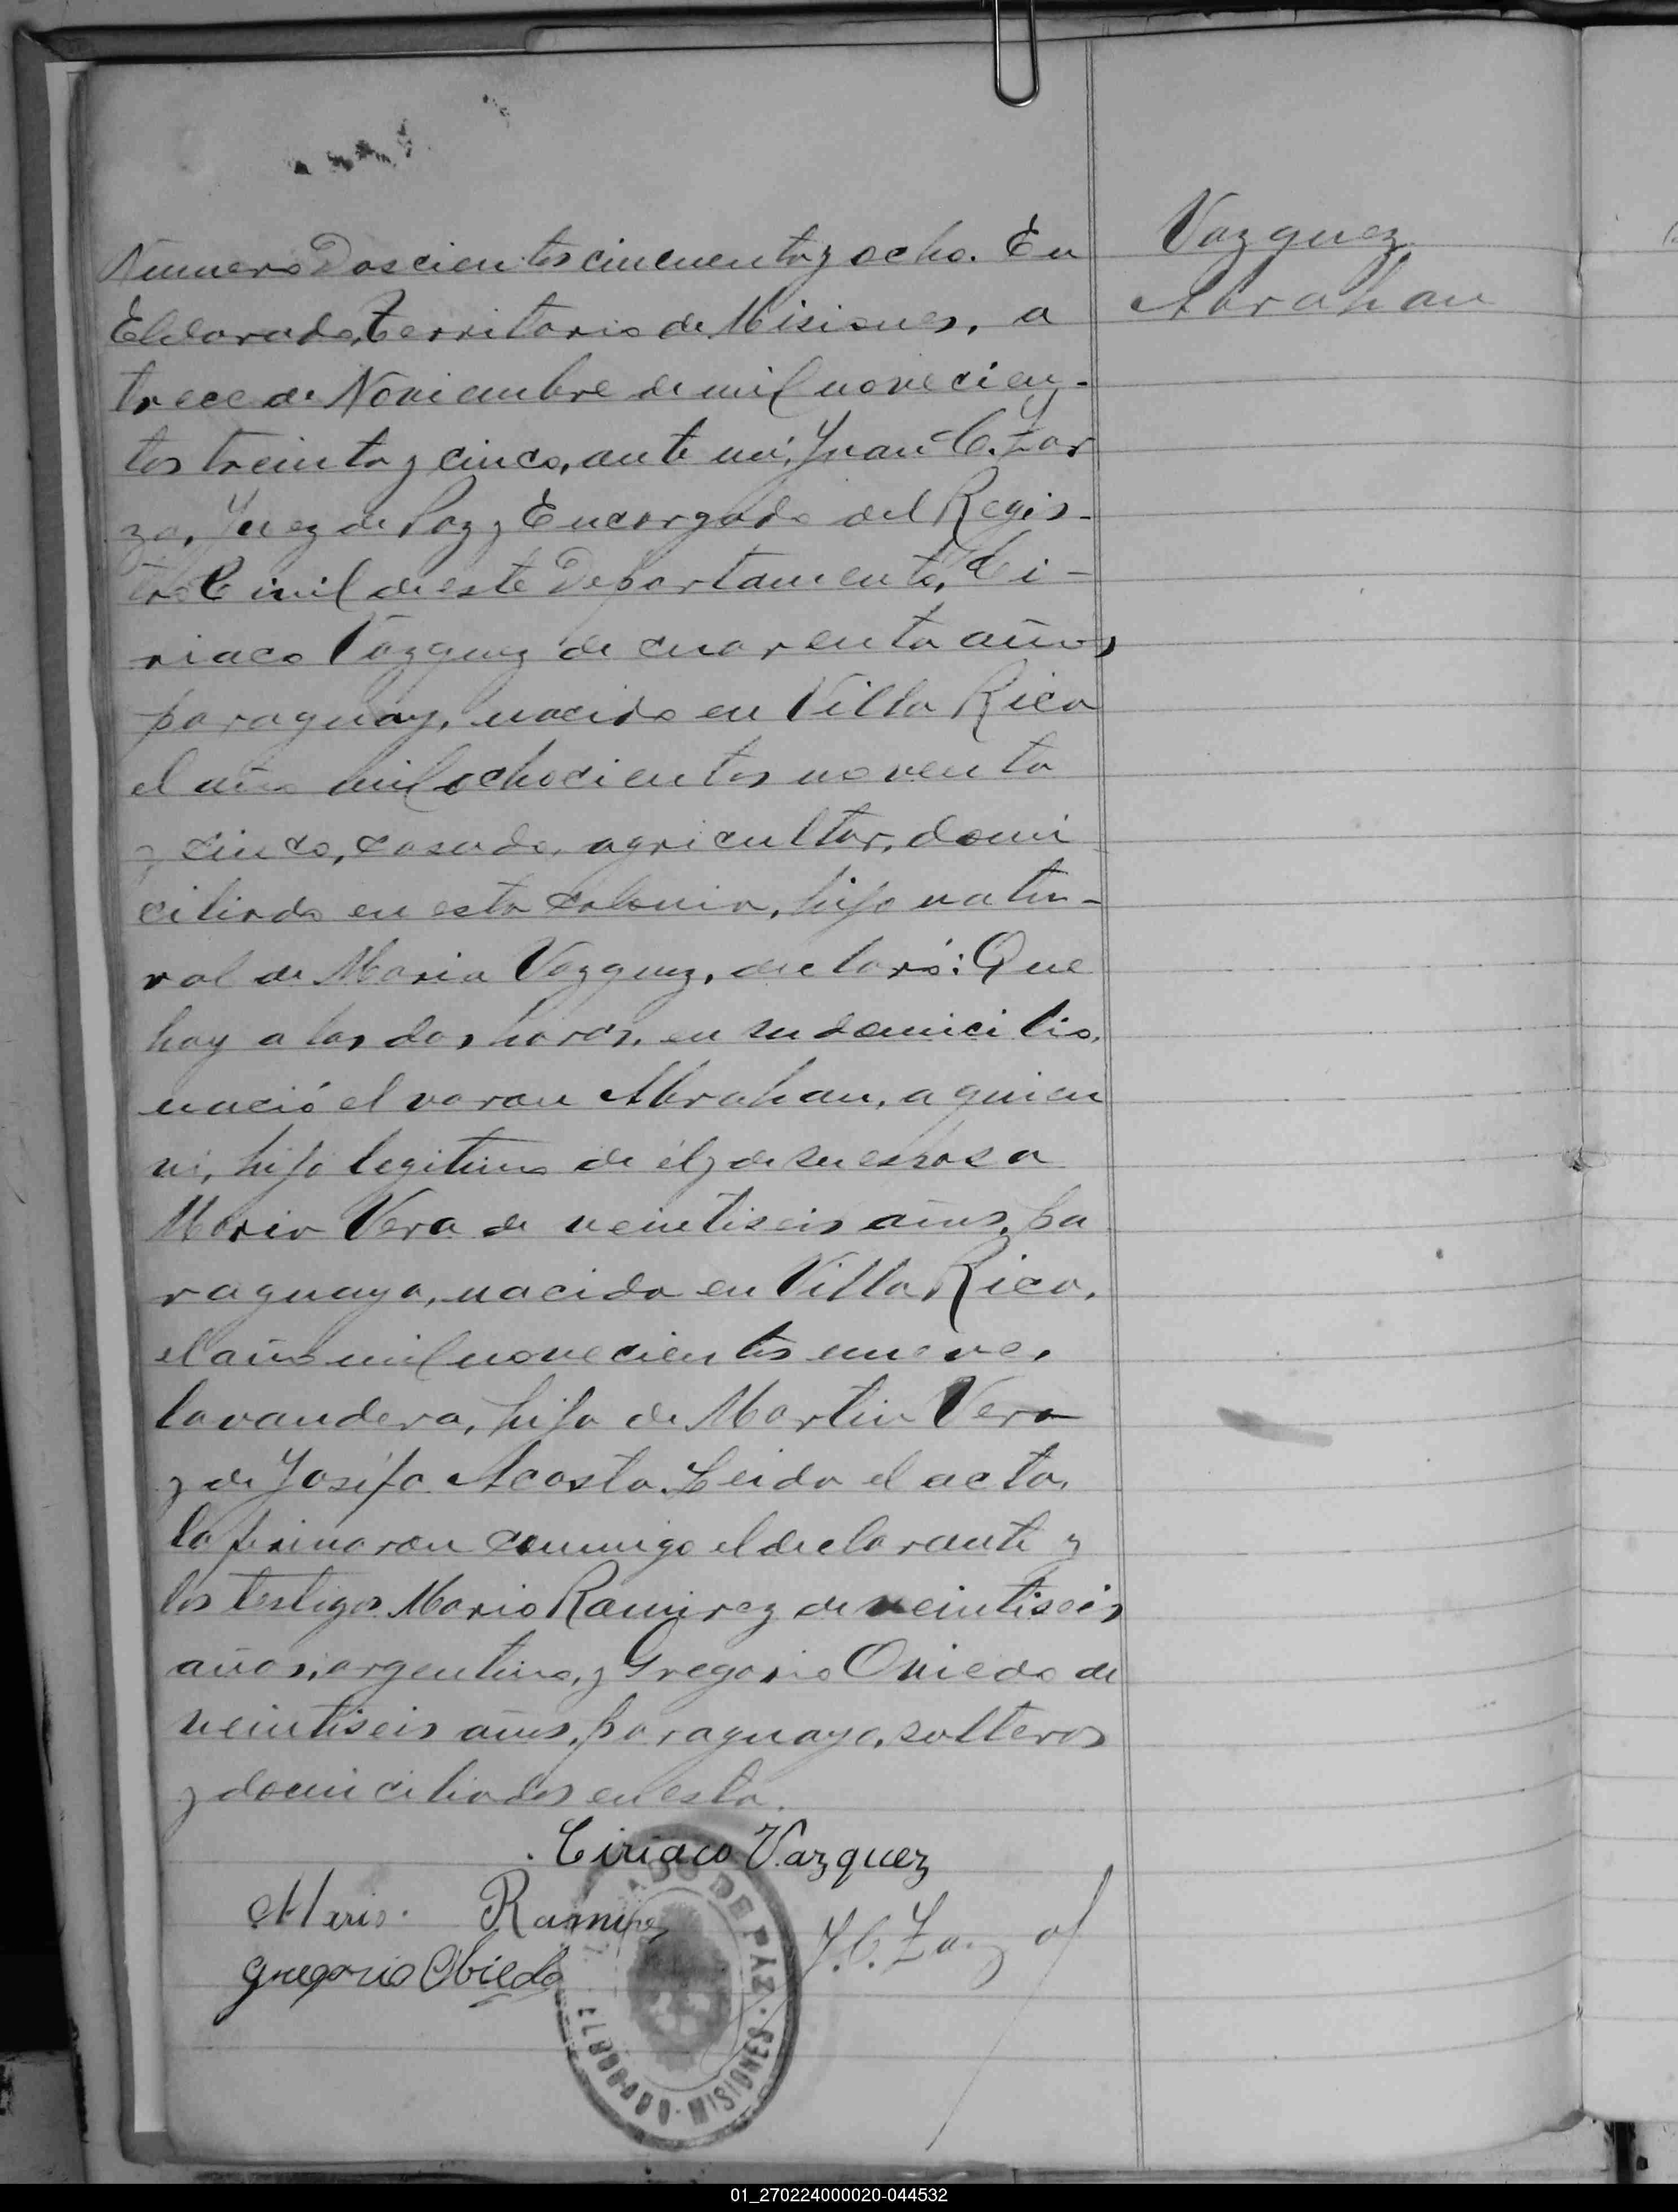 Numero Doscientos cincuenta y ocho. En
Eldorado, Territorio de Misiones, a
trece de Noviembre de mil novecien-
tos treinta y cinco, ante mi, Juan C. Zar
za, Juez de Paz y Encargado del Regis-
tro Civil de este Departamento, Ci-
riaco Vazquez de cuarenta años,
paraguay, nacido en Villa Rica
el año mil ochocientos noventa
y cinco, casado, agricultor, domi
ciliado en esta Colonia, hijo natu-
ral de Maria Vazquez, declaró: Que
hoy a las dos horas, en su domicilio,
nació el varon Abrahan, a quien
vi, hijo legitimo de él y de su esposa
Maria Vera de veintiseis años, pa
raguaya, nacida en Villa Rica,
el año mil novecientos nueve,
lavandera, hija de Martin Vera
y de Josefa Acosta. Leida el acta,
la firmaron conmigo el declarante y
los testigos Mario Ramirez de veintiseis
años, argentino, y Gregorio Oviedo de
veintiseis años, paraguayo, solteros
y domiciliados en esta.
Vazquez
Abrahan
Ciriaco Vazquez
Mario Ramirez
J. C. Zarza
Gregorio Obiedo
JUZGADO DE PAZ · ELDORADO · MISIONES
01_270224000020-044532